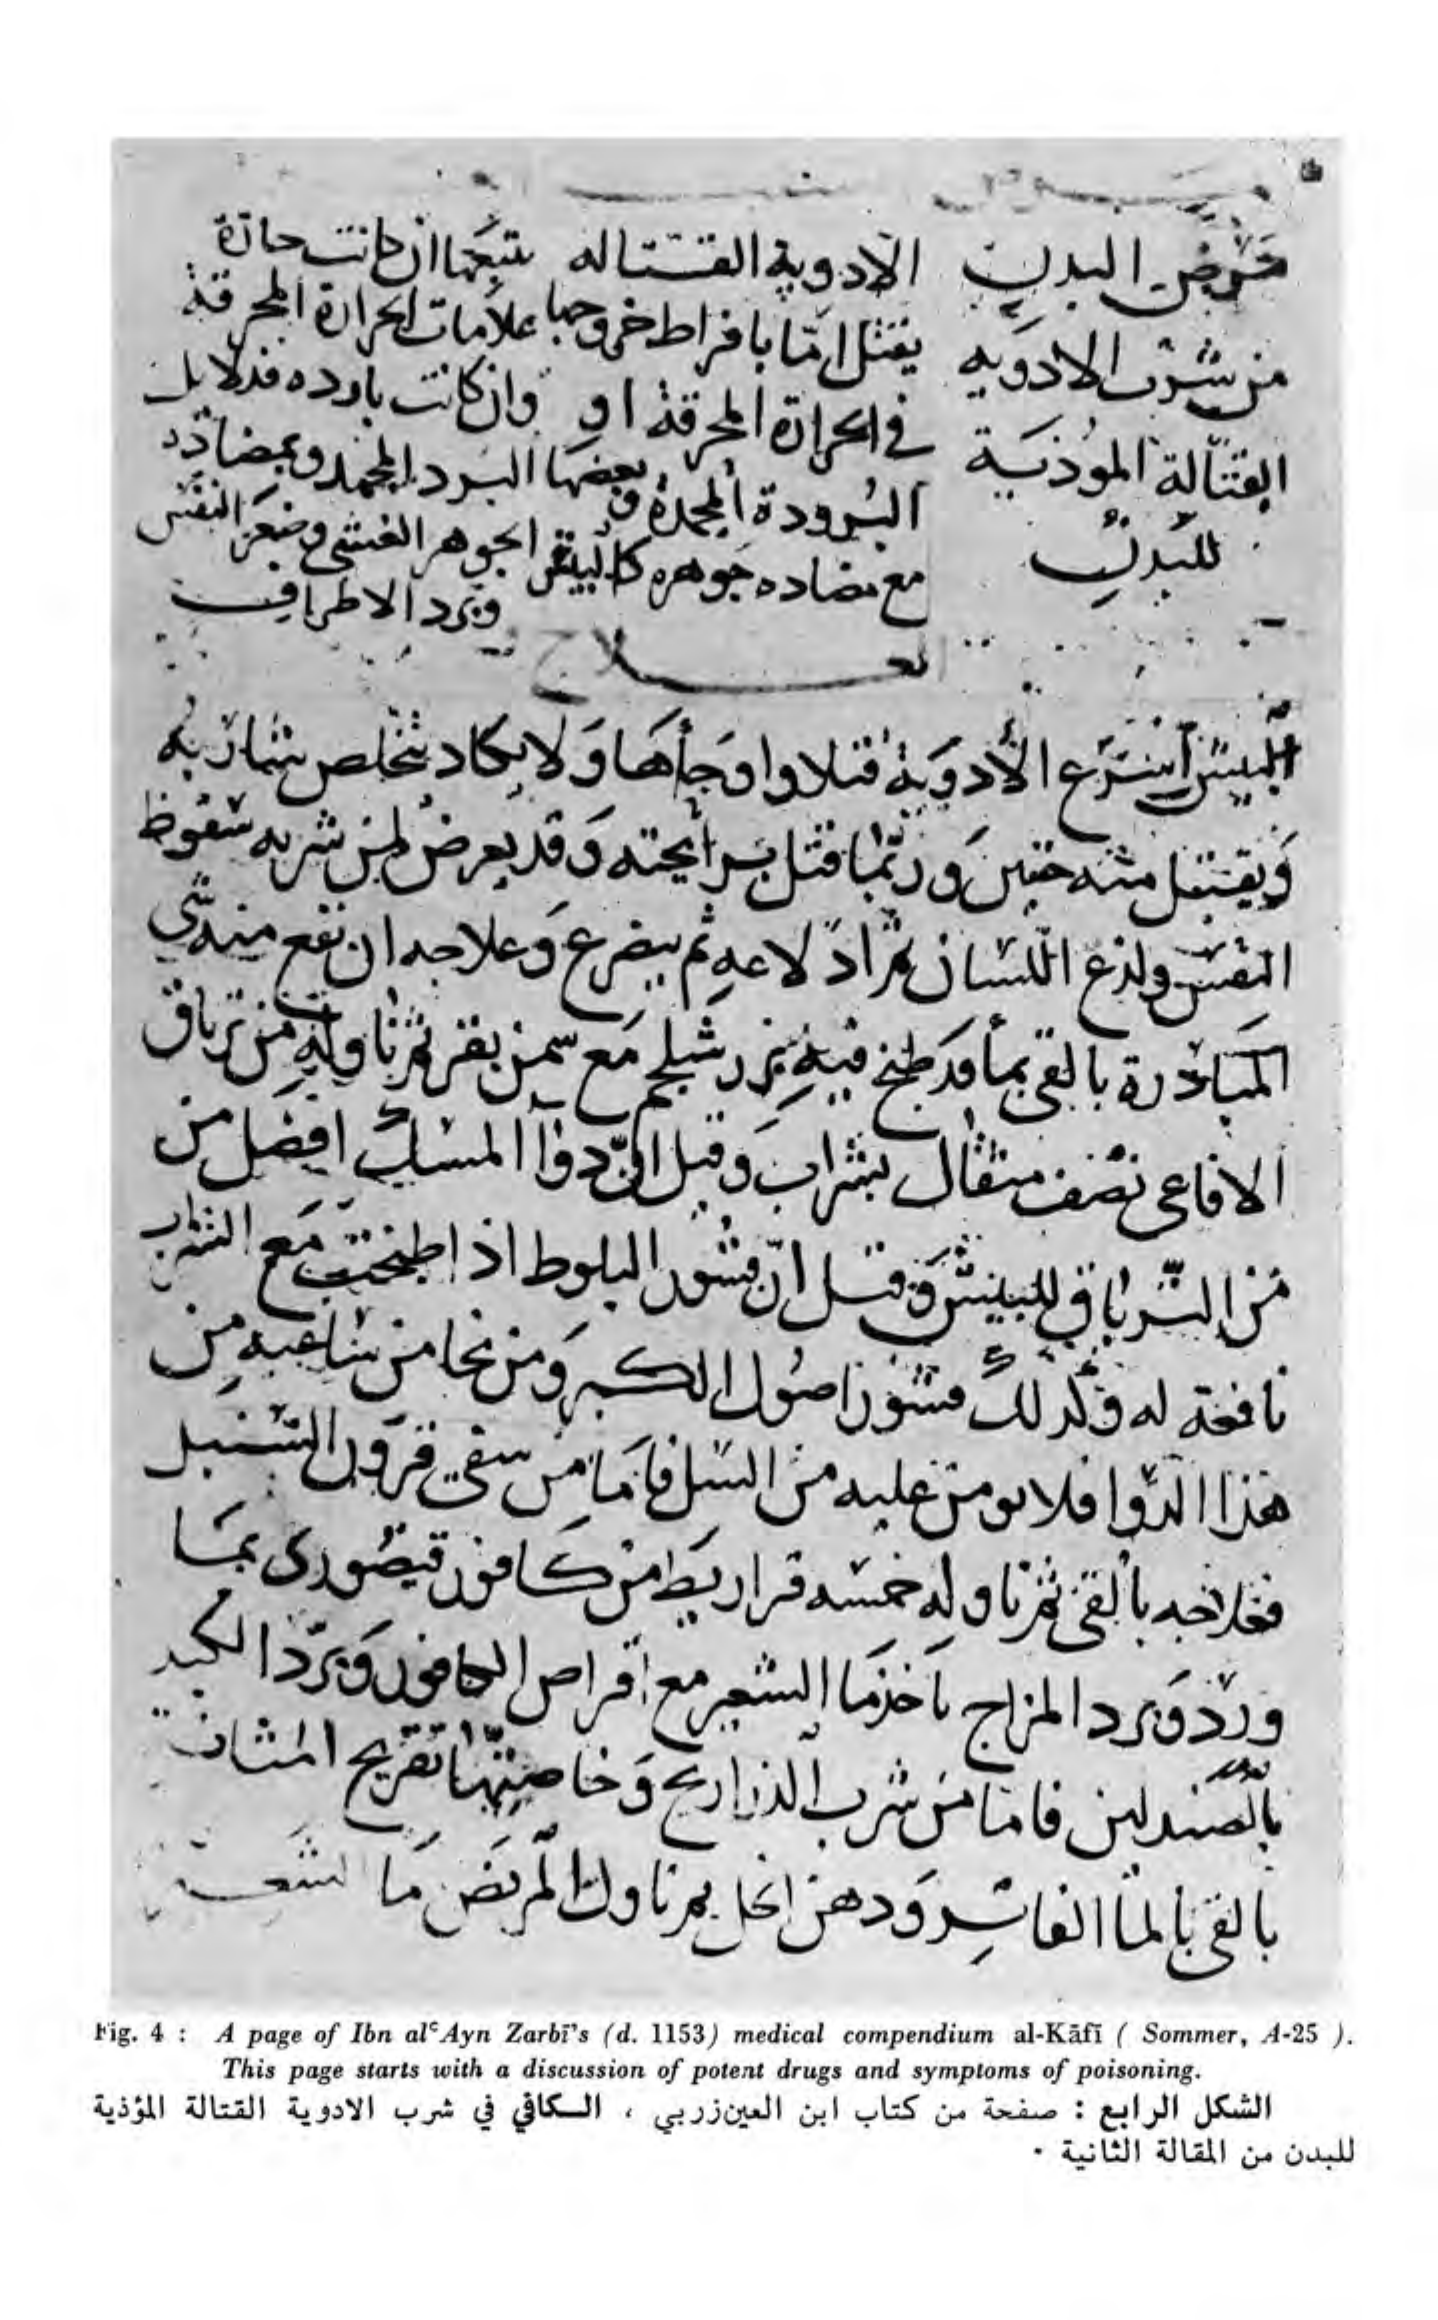 مرض البدن
من شرب الادويه
القتالة الموذية
للبدن
الادوية القتاله
يقتل امّا بافراط
في الحرارة المحرقة او
البرودة المجمدة
مع مضاده جوهره كالبيش
يتبعها ان كانت حارة
خروجها علامات الحرارة المحرقة
وان كانت بارده فدلايل
بعضها البرد المجمد وبمضادد
الجوهر الغشي وصغر النفس
وبرد الاطراف
العلاج
البيش اسرع الأدوية قتلا واوجأها ولا يكاد يتخلص شاربه
ويقتل منه حبتين وربّما قتل برايحته وقد يعرض لمن شربه سقوط
النفس ولذع اللسان ثم يصرع وعلاجه ان نفع منه شي
المبادرة بالقي بماء قد طبخ فيه بزر شلجم مع سمن بقر ثم تناوله من ترياق
الافاعي نصف مثقال بشراب وقيل انّ دوا المسك افضل من
من الترياق للبيش وقيل انّ قشور البلوط اذا طبخت مع الشراب
نافعة له وكذلك قشور اصول الكبر ومن نجا من شاربيه من
هذا الدوا فلا يومن عليه من السل فاما من سقي قرون السنبل
فعلاجه بالقي ثم تناوله خمسه قراريط من كافور قيصورى بما
ورد وبرد المزاج باخذ ما الشعير مع اقراص الكافور وبرّد الكبد
بالصندلين فاما من شرب الذراريح وخاصيتها تقريح المثانة
بالقي بالما الفاتر ودهن الخل ثم تناول المريض ما الشعير
Fig. 4 : A page of Ibn alᶜAyn Zarbī's (d. 1153) medical compendium al-Kāfī ( Sommer, A-25 ).
This page starts with a discussion of potent drugs and symptoms of poisoning.
الشكل الرابع : صفحة من كتاب ابن العين‌زربي ، الكافي في شرب الادوية القتالة المؤذية
للبدن من المقالة الثانية .